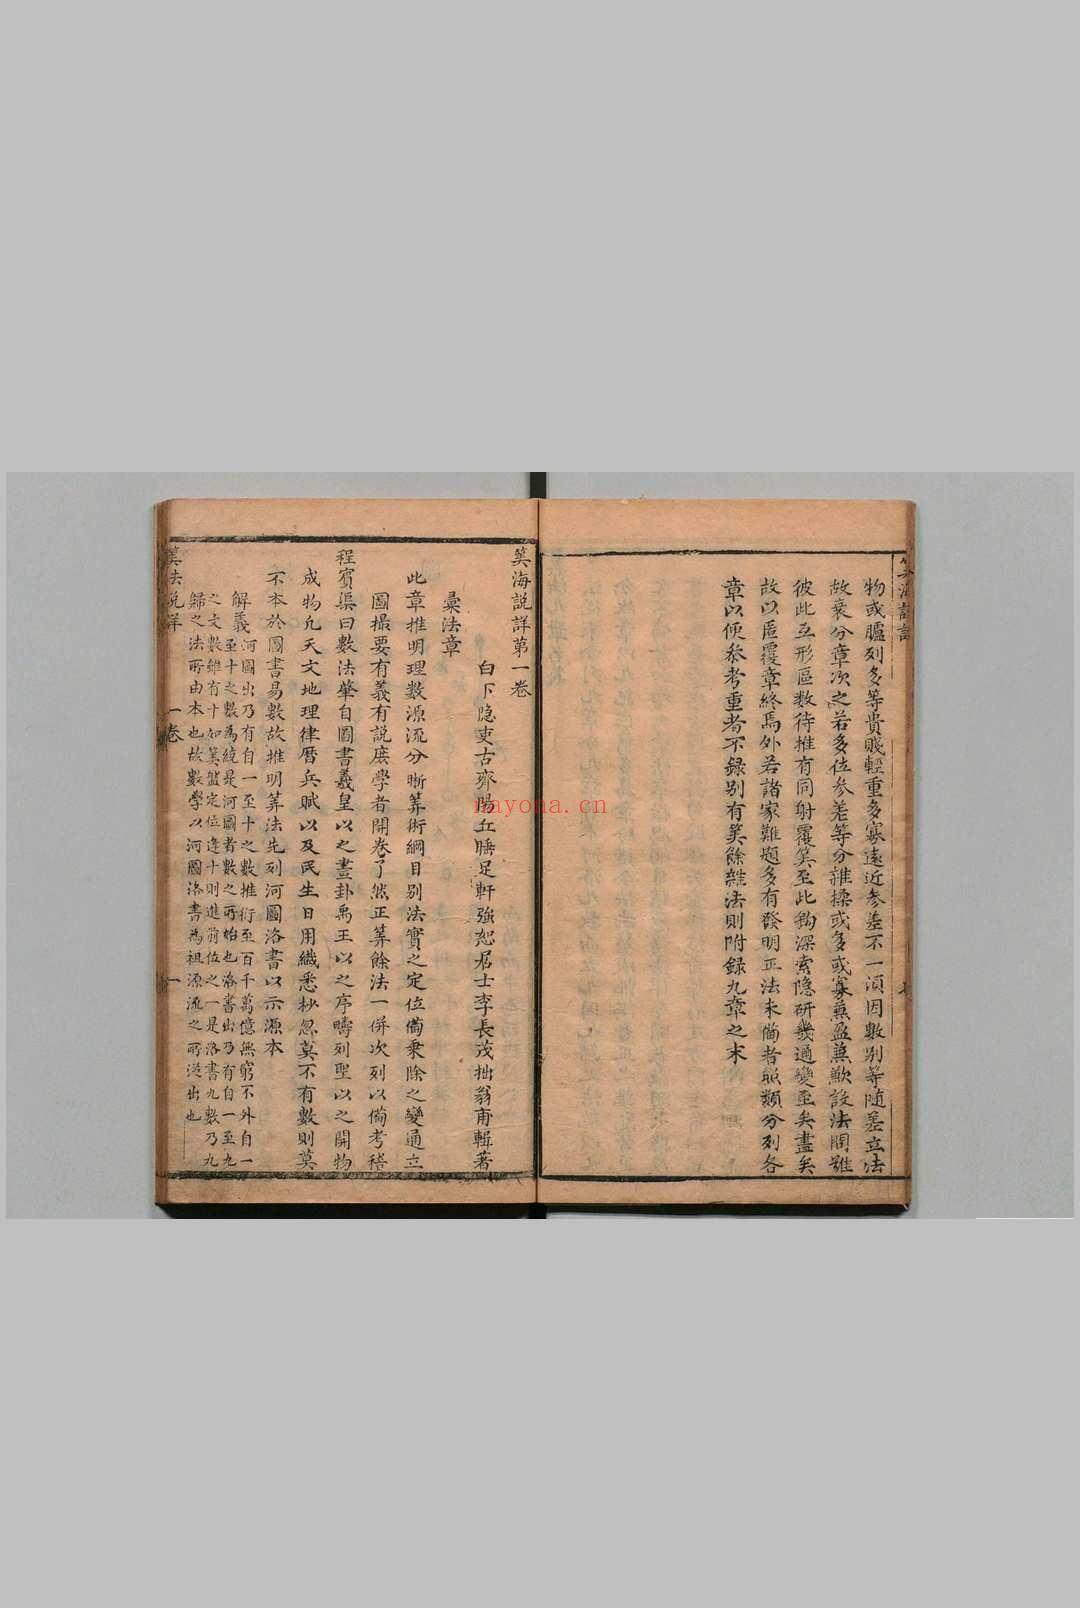 物或臚列多等貴賤輕重多寡遠近參差不一須因數別等隨差立法
故衰分章次之若多位參差等分雜揉或多或寡兼盈兼歉設法問難
彼此互形區數待推有同射覆筭至此鈎深索隐研幾通變至矣盡矣
故以匿覆章終焉外若諸家難題多有發明正法未備者照類分列各
章以便參考重者不録别有筭餘雜法則附録九章之末
筭海説詳第一卷
白下隐吏古齊陽丘睡足軒強恕居士李長茂拙翁甫輯著
彚法章
此章推明理數源流分晰筭術綱目别法實之定位備乗除之變通立
圖撮要有義有説庶學者開卷了然正筭餘法一併次列以備考稽
程賓渠曰數法肇自圖書羲皇以之畫卦禹王以之序疇列聖以之開物
成物凢天文地理律曆兵賦以及民生日用纎悉杪忽莫不有數則莫
不本於圖書易數故推明筭法先列河圖洛書以示源本
解義河圖出乃有自一至十之數推衍至百千萬億無窮不外自一
至十之數為統是河圖者數之所始也洛書出乃有自一至九
之文數雖有十如筭盤定位逢十則進前位之一是洛書九數乃九
歸之法所由本也故數學以河圖洛書為祖源流之所從出也
筭法説詳
一卷
一
mayona.cn